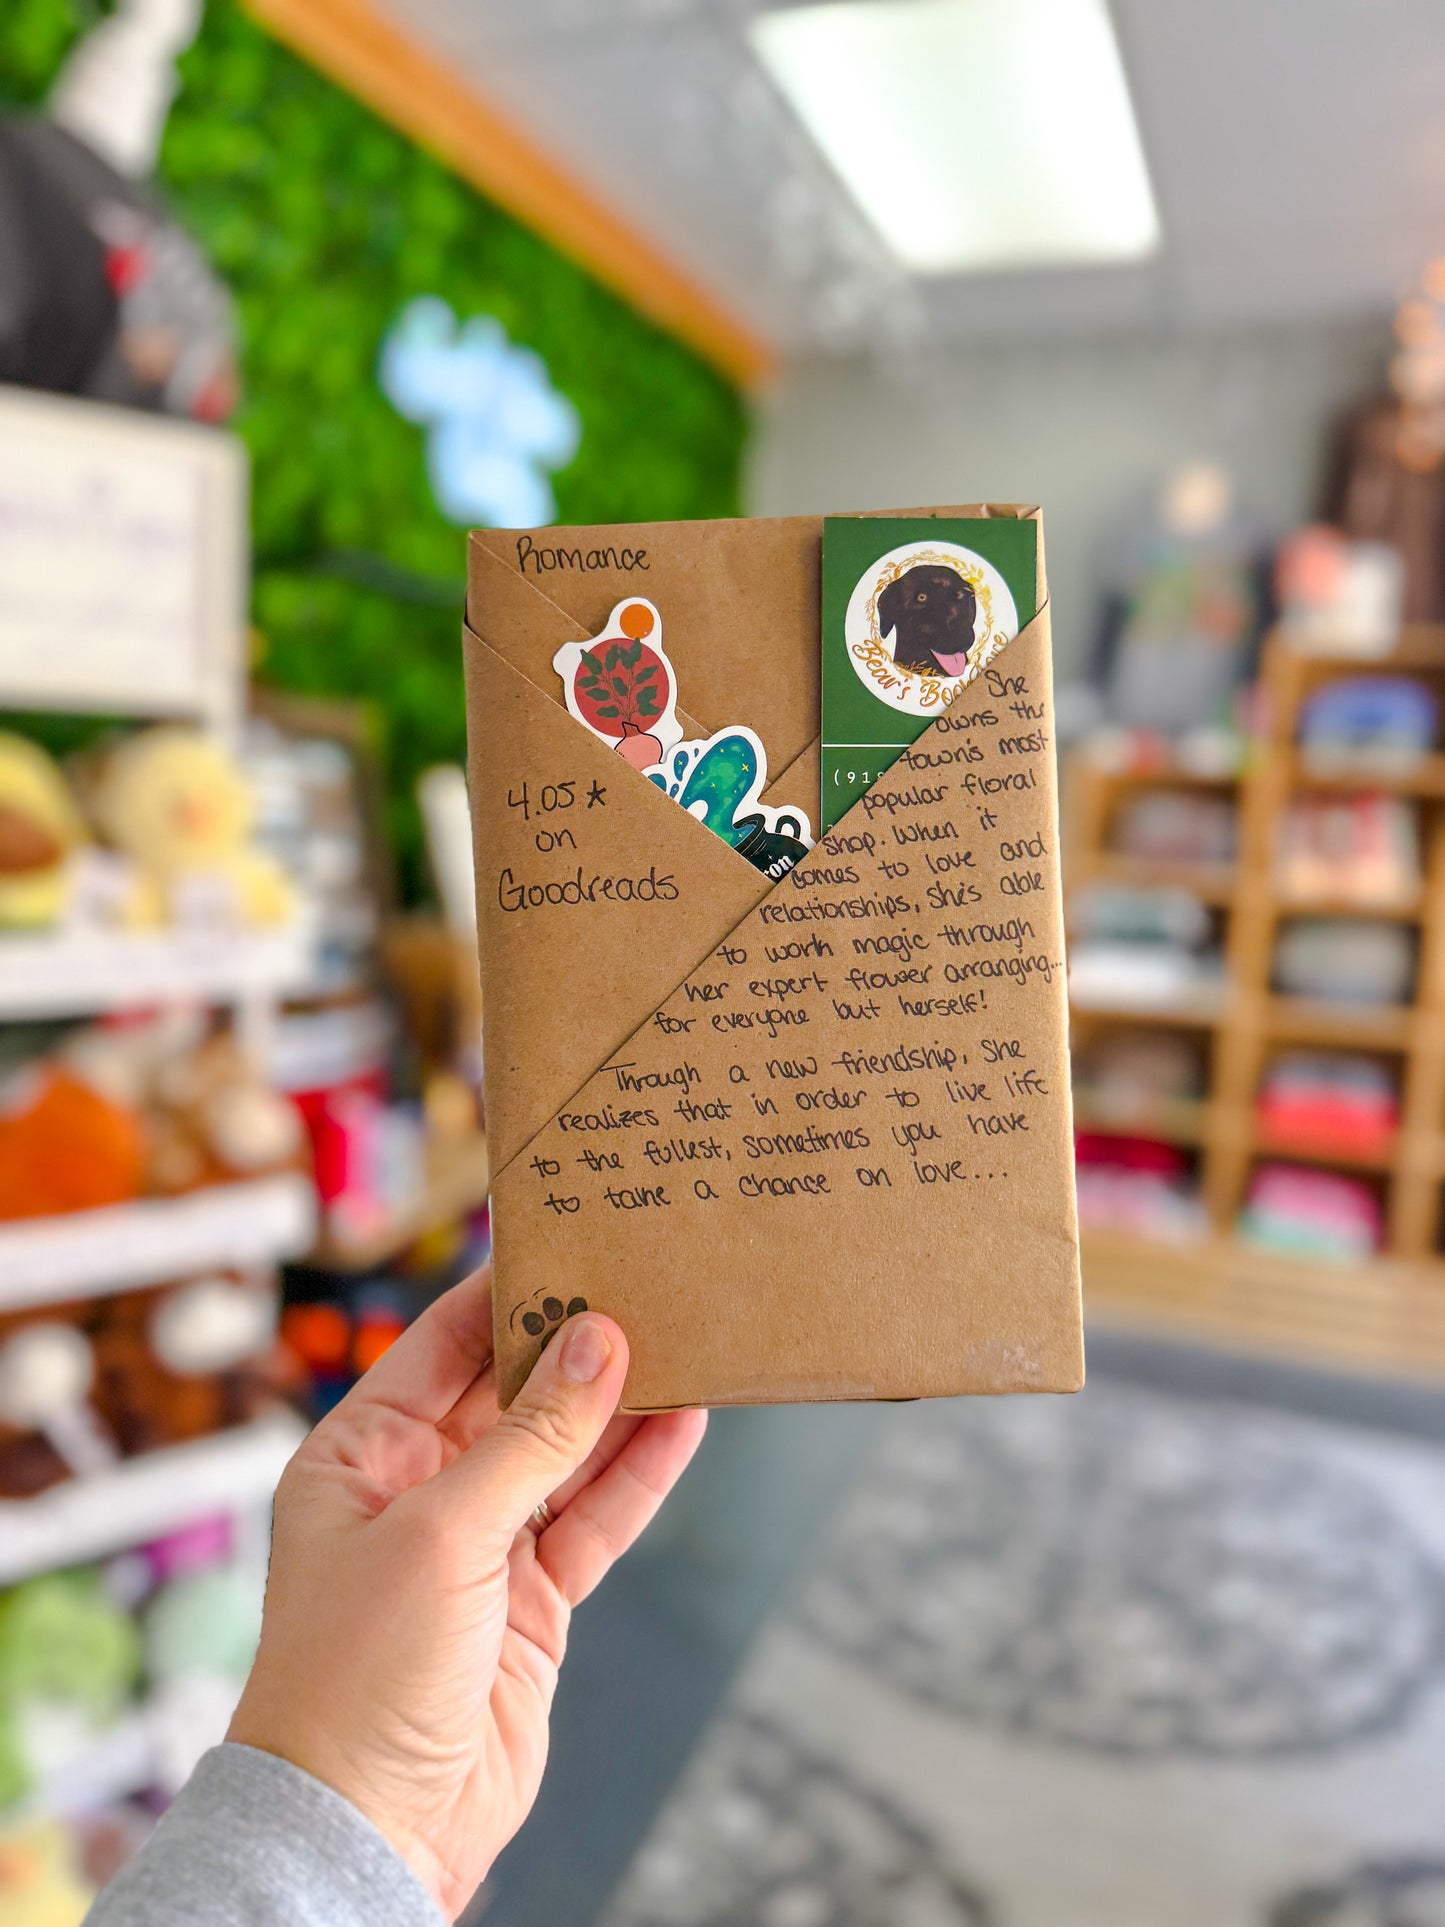 Romance
Bear's Bookstore
(919
on
4.05★
on
Goodreads
She
owns the
town's most
popular floral
shop. When it
comes to love and
relationships, she's able
to work magic through
her expert flower arranging...
for everyone but herself!
Through a new friendship, she
realizes that in order to live life
to the fullest, sometimes you have
to take a chance on love...